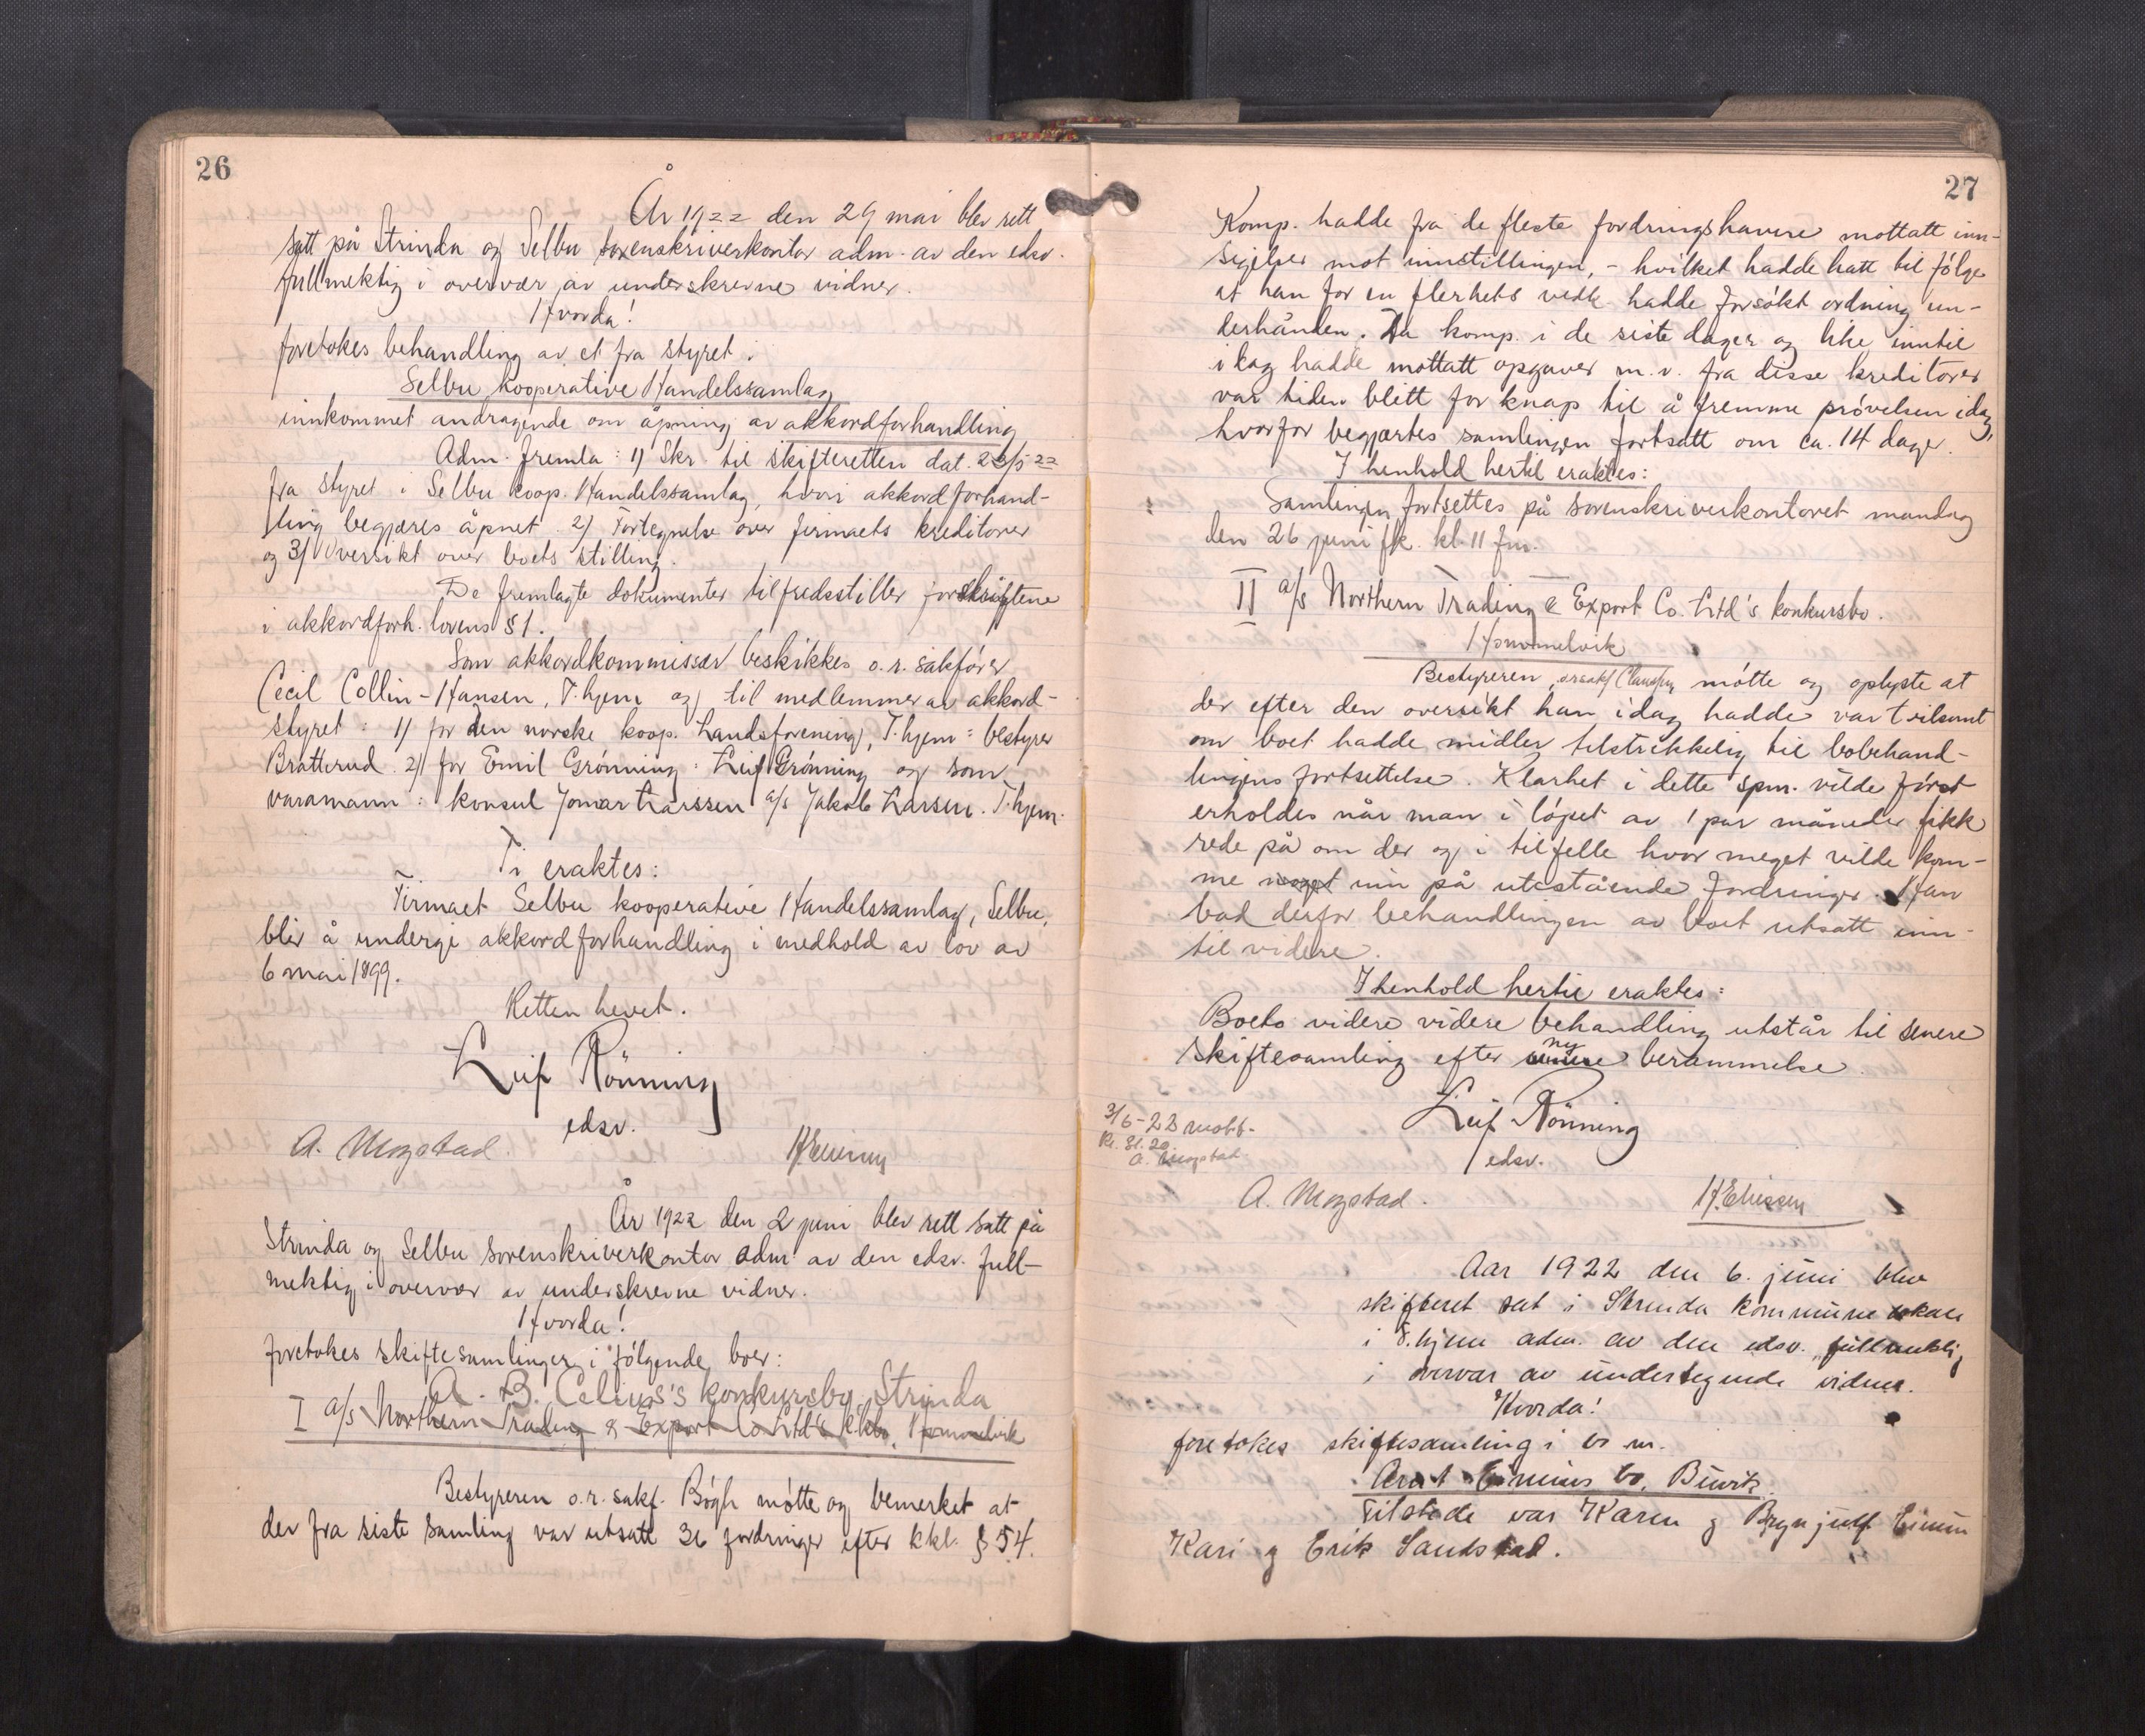 26
År 1922 den 29 mai blev rett
satt på Strinda og Selbu sorenskriverkontor adm. av den edsv.
fullmektig i overvær av underskrevne vidner.
Hvorda!
foretokes behandling av et fra styret i
Selbu kooperative Handelssamlag
innkommet andragende om åpning av akkordforhandling
Adm. fremla: 1) Skr. til skifteretten dat. 23/5 22
fra styret i Selbu koop. Handelssamlag, hvori akkordforhand-
ling begjæres åpnet. 2) Fortegnelse over firmaets kreditorer
og 3) Oversikt over boets stilling.
De fremlagte dokumenter tilfredsstiller forskriftene
i akkordforh. lovens § 1.
Som akkordkommissær beskikkes o.r. sakfører
Cecil Collin-Hansen, T.hjem og til medlemmer av akkord-
styret: 1) for den norske koop. Landsforening, T.hjem: bestyrer
Bratterud. 2) for Emil Grønning: Leif Grønning og som
varamann: konsul Jomar Larssen a/s Jakob Larsen. T.hjem.
Ti eraktes:
Firmaet Selbu kooperative Handelssamlag, Selbu,
blir å undergi akkordforhandling i medhold av lov av
6 mai 1899.
Retten hevet.
Leif Rönning
edsv.
A. Mogstad.
År 1922 den 2 juni blev rett satt på
Strinda og Selbu sorenskriverkontor adm av den edsv. full-
mektig i overvær av underskrevne vidner.
Hvorda!
foretokes skiftesamlinger i følgende boer:
A. B. Celius's konkursbo, Strinda
I a/s Northern Trading & Export Co Ltd's k.bo, Hommelvik
Bestyreren o.r. sakf. Bögh møtte og bemerket at
der fra siste samling var utsatt 36 fordringer efter kkl. § 54.
27
Komp. hadde fra de fleste fordringshavere mottatt inn-
sigelser mot innstillingen, - hvilket hadde hatt til følge
at han for en flerhets vedk. hadde forsøkt ordning un-
derhånden. Da komp. i de siste dager og like inntil
i dag hadde mottatt opgaver m.v. fra disse kreditorer
var tiden blitt for knap til å fremme prøvelsen idag,
hvorfor begjærtes samlingen fortsatt om ca. 14 dager.
I henhold hertil eraktes:
Samlingen fortsettes på sorenskriverkontoret mandag
den 26 juni fk. kl. 11 fm.
II a/s Northern Trading & Export Co. Ltd's konkursbo.
Hommelvik
Bestyreren, orsakf Claussen møtte og oplyste at
der efter den oversikt han idag hadde var tvilsomt
om boet hadde midler tilstrekkelig til bobehand-
lingens fortsettelse. Klarhet i dette spm. vilde først
erholdes når man i løpet av 1 par måneder fikk
rede på om der og i tilfelle hvor meget vilde kom-
me noget inn på utestående fordringer. Han
bad derfor behandlingen av boet utsatt inn-
til videre.
I henhold hertil eraktes:
Boets videre videre behandling utstår til senere
skiftesamling efter ny berammelse.
Leif Rönning
edsv.
3/6-22 mott.
Kr. 31.20
A. Mogstad
A. Mogstad.
H. Eliessen
Aar 1922 den 6. juni blev
skifteret sat i Strinda kommunelokale
i T.hjem adm. av den edsv. fullmektig
i overvær av undertegnede vidner.
Hvorda!
foretokes skiftesamling i bl. m.
bo, Buvik.
Tilstede var Karen og Brynjulf
Kari og Erik Sandstad.